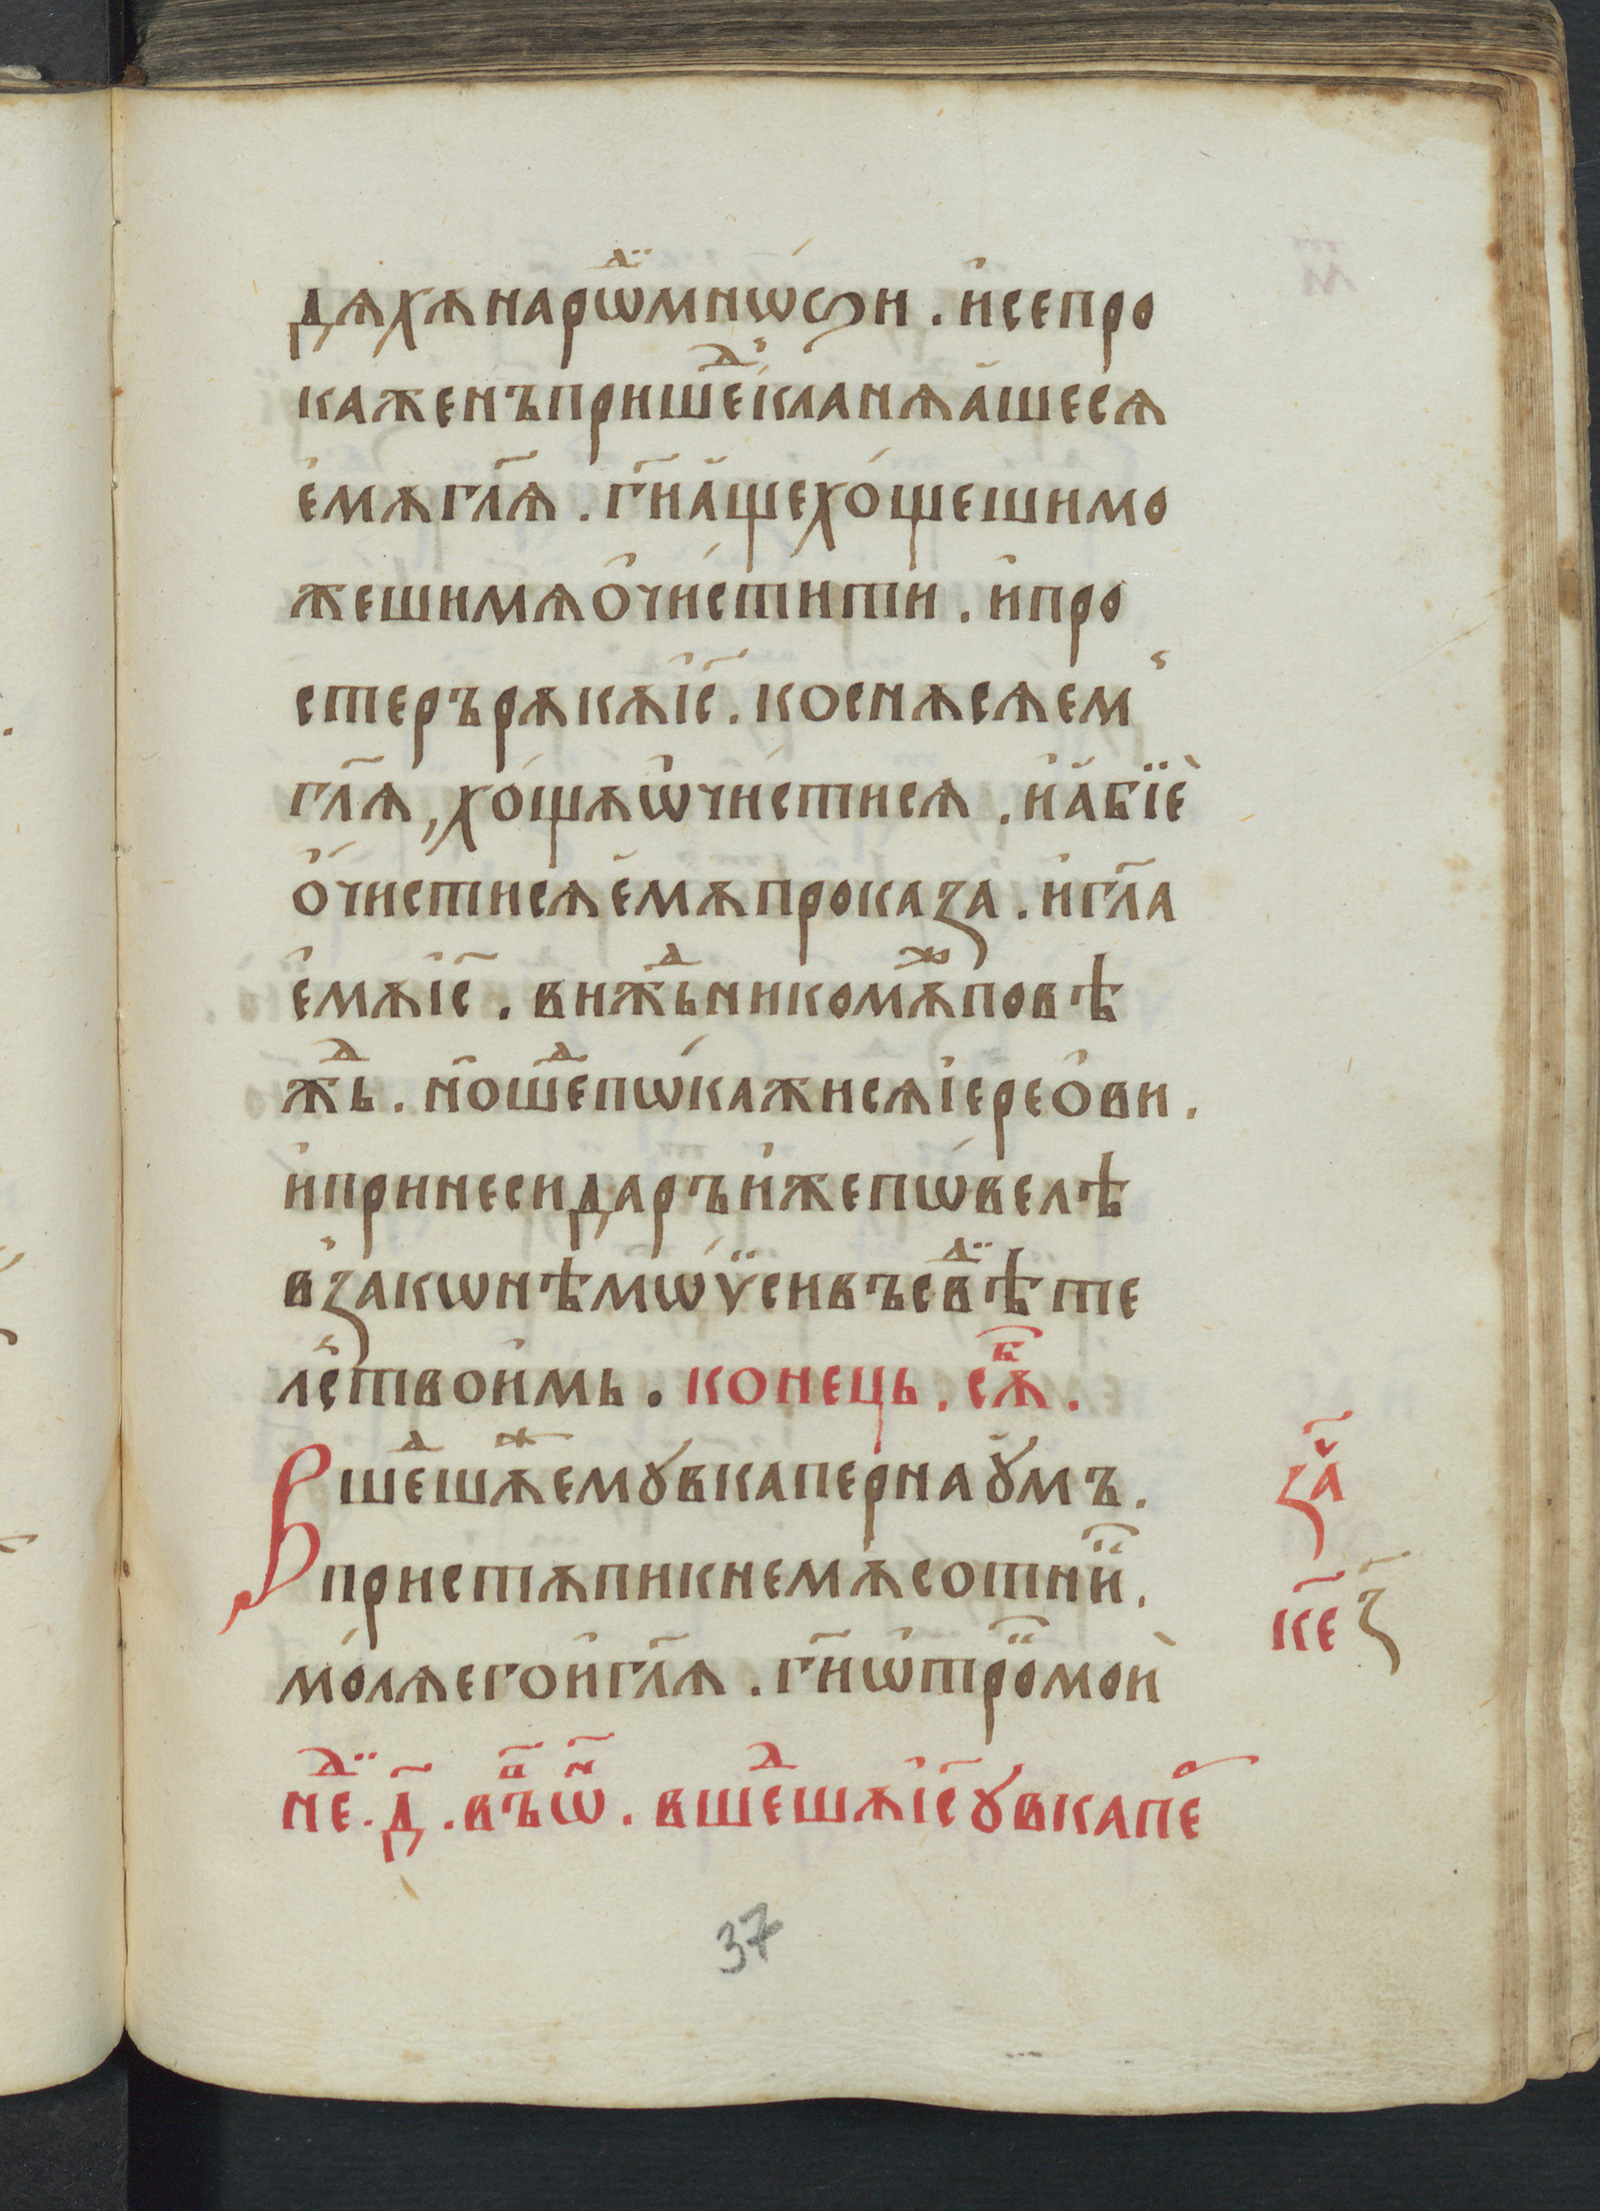 дѧхѫнарѡⷣ҇мнѡѕи . и҆сепро
каженъпришеⷣ҇кланѧ́ашесѧ
е҆мѫгл҃ѧ . гн҃иа́щехо́щешимо
жешимѧо҆чи́стити . и҆про
стерърѫкѫі҆с҃ . коснѫсѧем꙽
гл҃ѧ , хо́щѫѡ҆чи́стисѧ . и҆а́бїѐ
о҆чи́стисѧе҆мѫпроказа . и҆гл҃а
е҆мѫі҆с҃ . вижⷣ҇ьникомѫⷤ҇повѣ
жⷣ҇ь . но҆шеⷣ҇пѡ́кажисѧі҆ерео҆ви .
и҆принесидаръи҆жепѡ́велѣ
взако́нѣмѡѵ̈сивъсвⷣ҇ѣте
лс҆твои҆мь . конець . сѫⷠ҇ .
Вшеⷣ҇шѫⷤ҇емꙋвкапернаꙋ́мъ .
пристѫпикнемѫ́сотниⷦ҇ .
мо́лѧегои҆гл҃ѧ . гн҃иѡ҆троⷦ҇моѝ
за҄ⷱ
ке҃ з҃
неⷣ҇ . д҃ . въⷫ҇ѡⷩ҇ . вшеⷣ҇шѫі҆с҃ꙋвкапеⷬ҇
37